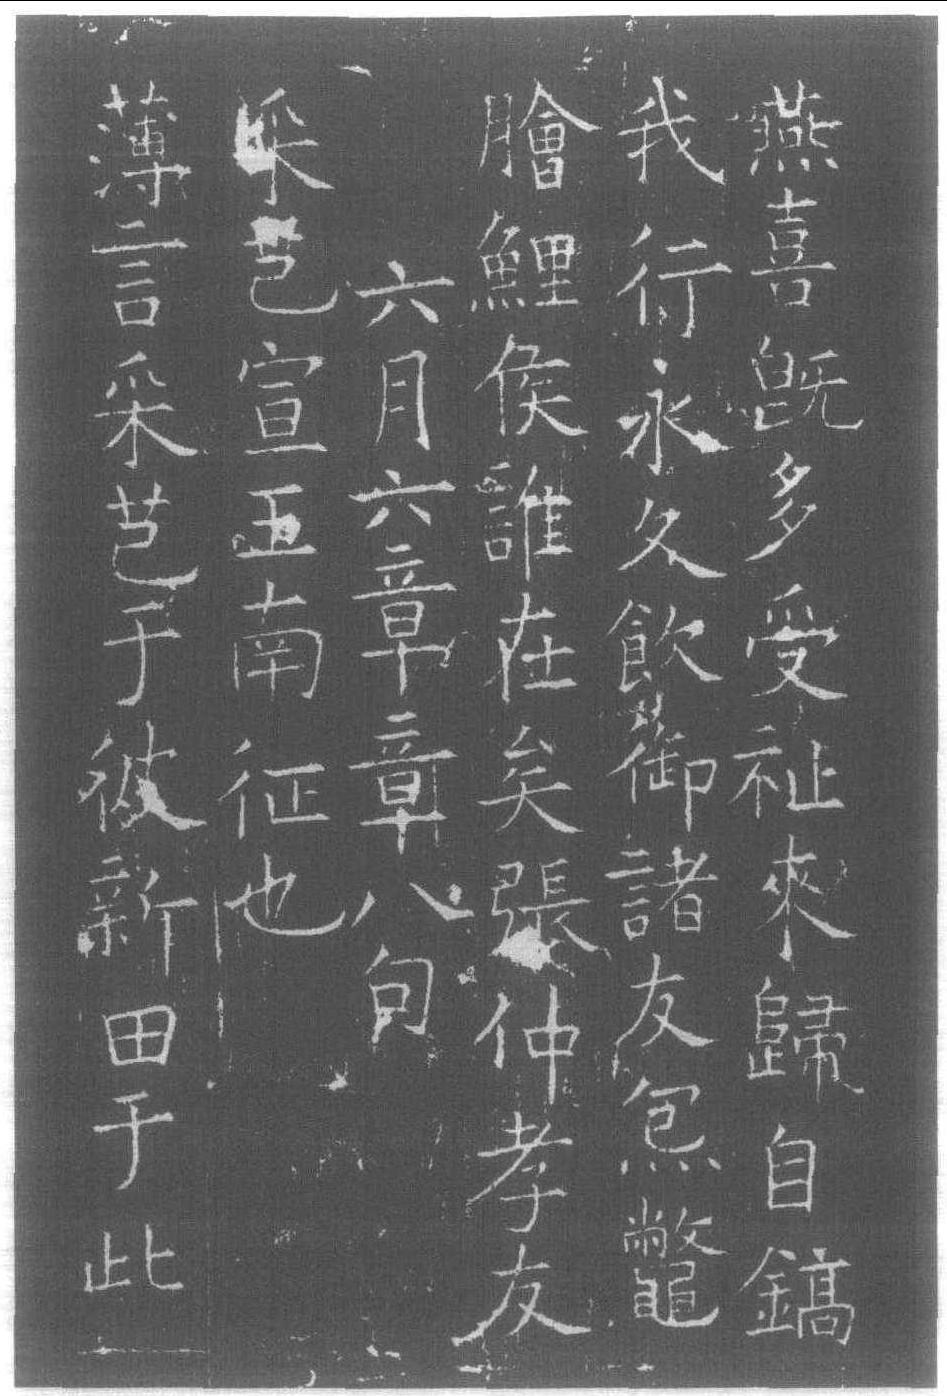 燕喜既多受祉來歸自鎬
我行永久飲御諸友炰鼈
膾鯉侯誰在矣張仲孝友
六月六章章八句
采芑宣王南征也
薄言采芑于彼新田于此